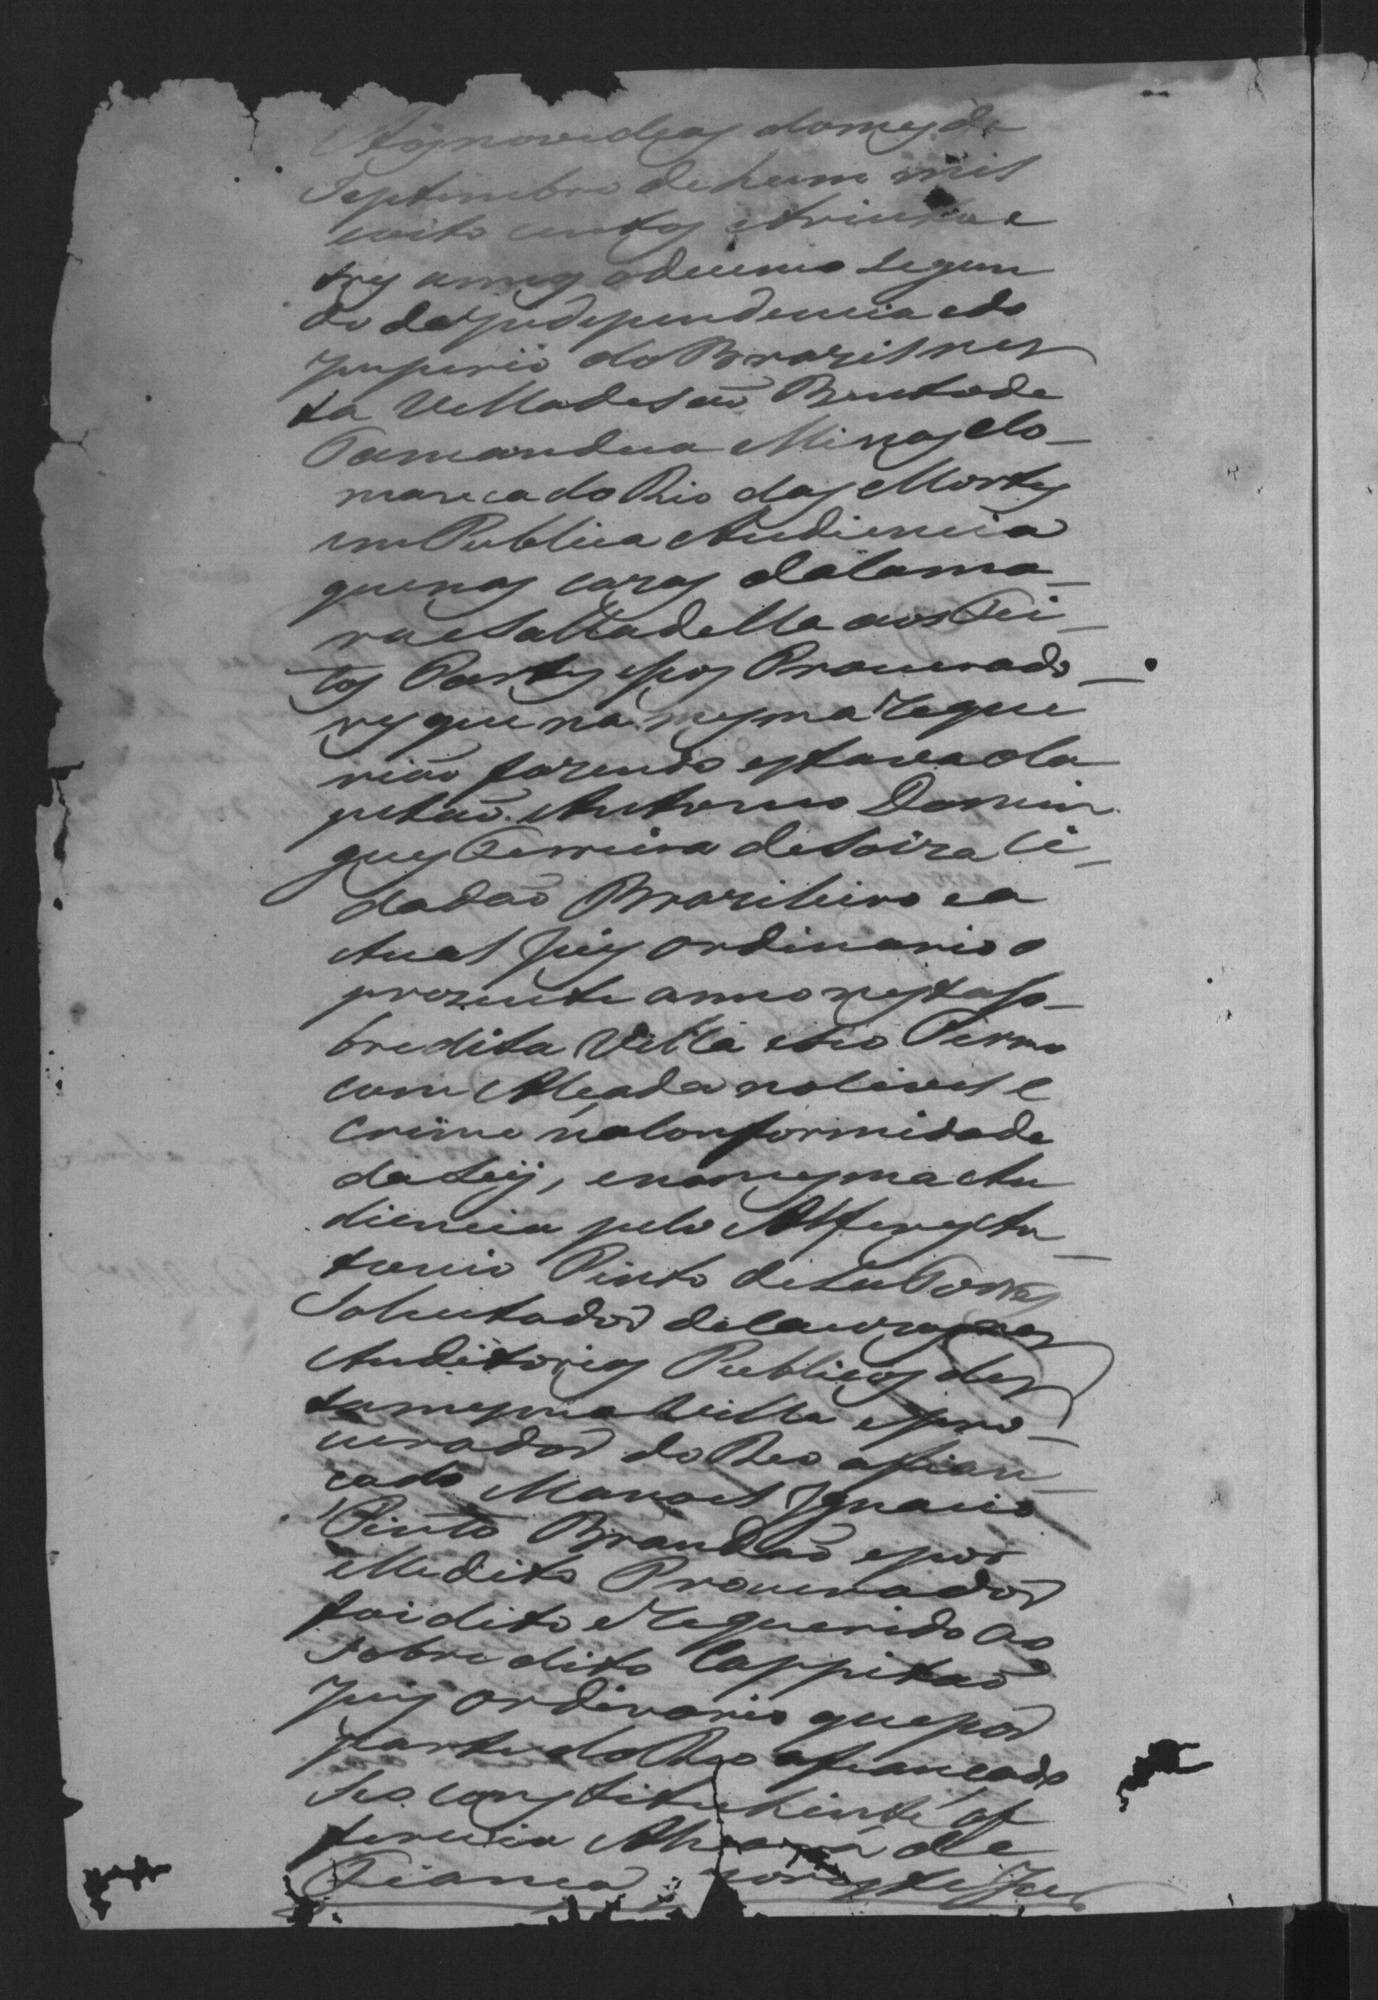 Aos nove dias do mes de
Septembro de hum mil
oito centos e trinta e
tres annos decimo segun
do da Independencia e do
Imperio do Brazil nes
ta Villa de São Bento de
Tamandua Minas Co-
marca do Rio das Mortes
em Publica Audiencia
que nas cazas da Cama-
ra e Salla della aos Fei-
tos Partes e seos Procurado-
res que na mesma reque
rião fazendo estava o Ca
pitão Antonio Domin
gues Ferreira de Soiza Ci-
dadão Brazileiro e a
ctual Juiz Ordinario o
prezente anno nesta so-
bredita Villa e seo Termo
com Alçada no Civel e
Crime na Conformidade
da Ley, e na mesma Au
diencia pelo Alferes An-
tonio Pinto de
Solicitador de Cauzas nos
Auditorios Publicos des
ta mesma Villa e pro-
curador do Reo afian-
cado Manoel Ignacio
Pinto Brandão e por
elle dito Procurador
foi dito e requerido ao
sobre dito Cappitão
Juiz Ordinario que por
parte do Reo afiancado
Seo Constituhinte of
ferecia de
Fianca por este